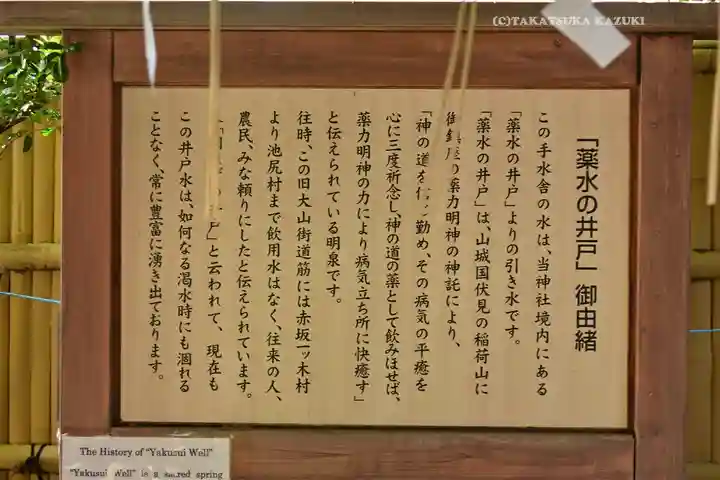 (C)TAKATSUKA KAZUKI
「薬水の井戸」 御由緒
この手水舎の水は、当神社境内にある
「薬水の井戸」よりの引き水です。
「薬水の井戸」は、山城国伏見の稲荷山に
御鎮座の薬力明神の神託により、
「神の道を信じ勤め、その病気の平癒を
心に三度祈念し、神の道の薬として飲みほせば、
薬力明神の力により病気立ち所に快癒す」
と伝えられている明泉です。
往時、この旧大山街道筋には赤坂一ッ木村
より池尻村まで飲用水はなく、往来の人、
農民、みな頼りにしたと伝えられています。
」と云われて、現在も
この井戸水は、如何なる渇水時にも涸れる
ことなく、常に豊富に湧き出ております。
The History of "Yakusui Well"
"Yakusui Well" is a sacred spring